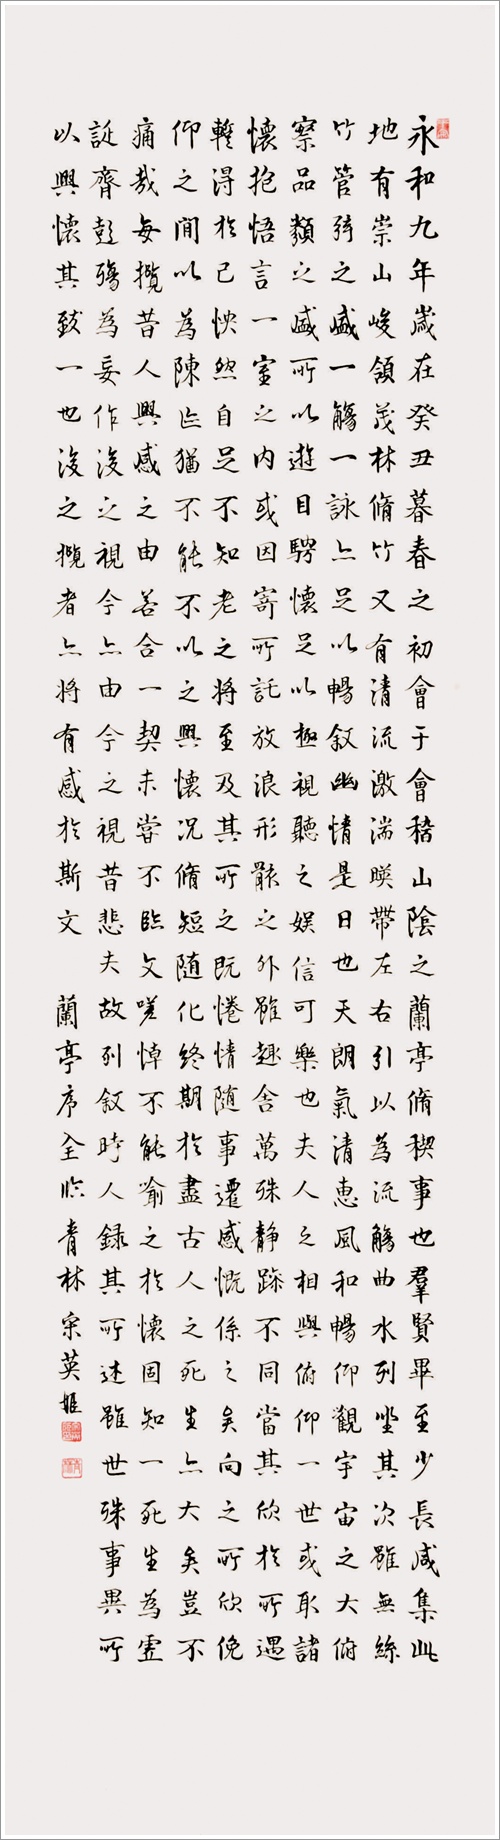 永和九年歲在癸丑暮春之初會于會稽山陰之蘭亭脩稧事也羣賢畢至少長咸集此
地有崇山峻領茂林脩竹又有清流激湍暎帶左右引以為流觴曲水列坐其次雖無絲
竹管弦之盛一觴一詠亦足以暢叙幽情是日也天朗氣清惠風和暢仰觀宇宙之大俯
察品類之盛所以遊目騁懷足以極視聽之娛信可樂也夫人之相與俯仰一世或取諸
懷抱悟言一室之內或因寄所託放浪形骸之外雖趣舍萬殊靜躁不同當其欣於所遇
蹔得於己怏然自足不知老之將至及其所之既惓情隨事遷感慨係之矣向之所欣俛
仰之間以為陳迹猶不能不以之興懷況脩短隨化終期於盡古人之死生亦大矣豈不
痛哉每攬昔人興感之由若合一契未嘗不臨文嗟悼不能喻之於懷固知一死生為虛
誕齊彭殤為妄作後之視今亦由今之視昔悲夫故列叙時人録其所述雖世殊事異所
以興懷其致一也後之攬者亦將有感於斯文 蘭亭序全臨青林宋英姬